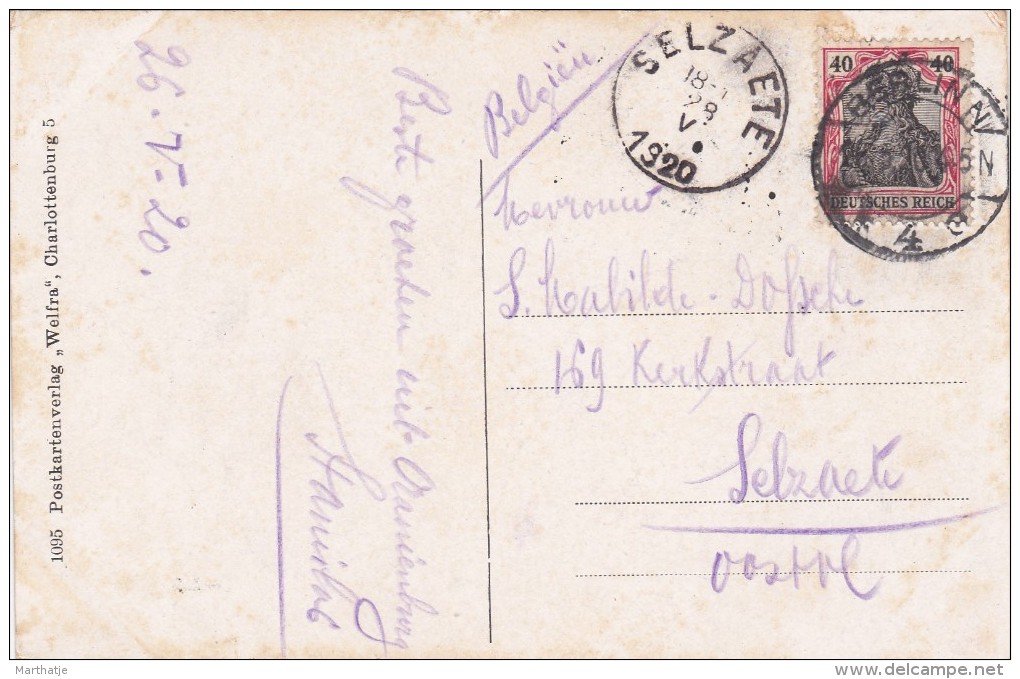 1095 Postkartenverlag „Welfra“, Charlottenburg 5
26. V - 20.
Beste groeten uit Oranienburg
Belgiën
Mevrouw
S. Mabilde - Dossche
169 Kerkstraat
Selzaete
Oostvl
SELZAETE
18-
28
V
1920
40 40
DEUTSCHES REICH
BERLIN N
45 N
* 4 a
Marthatje
www.delcampe.net